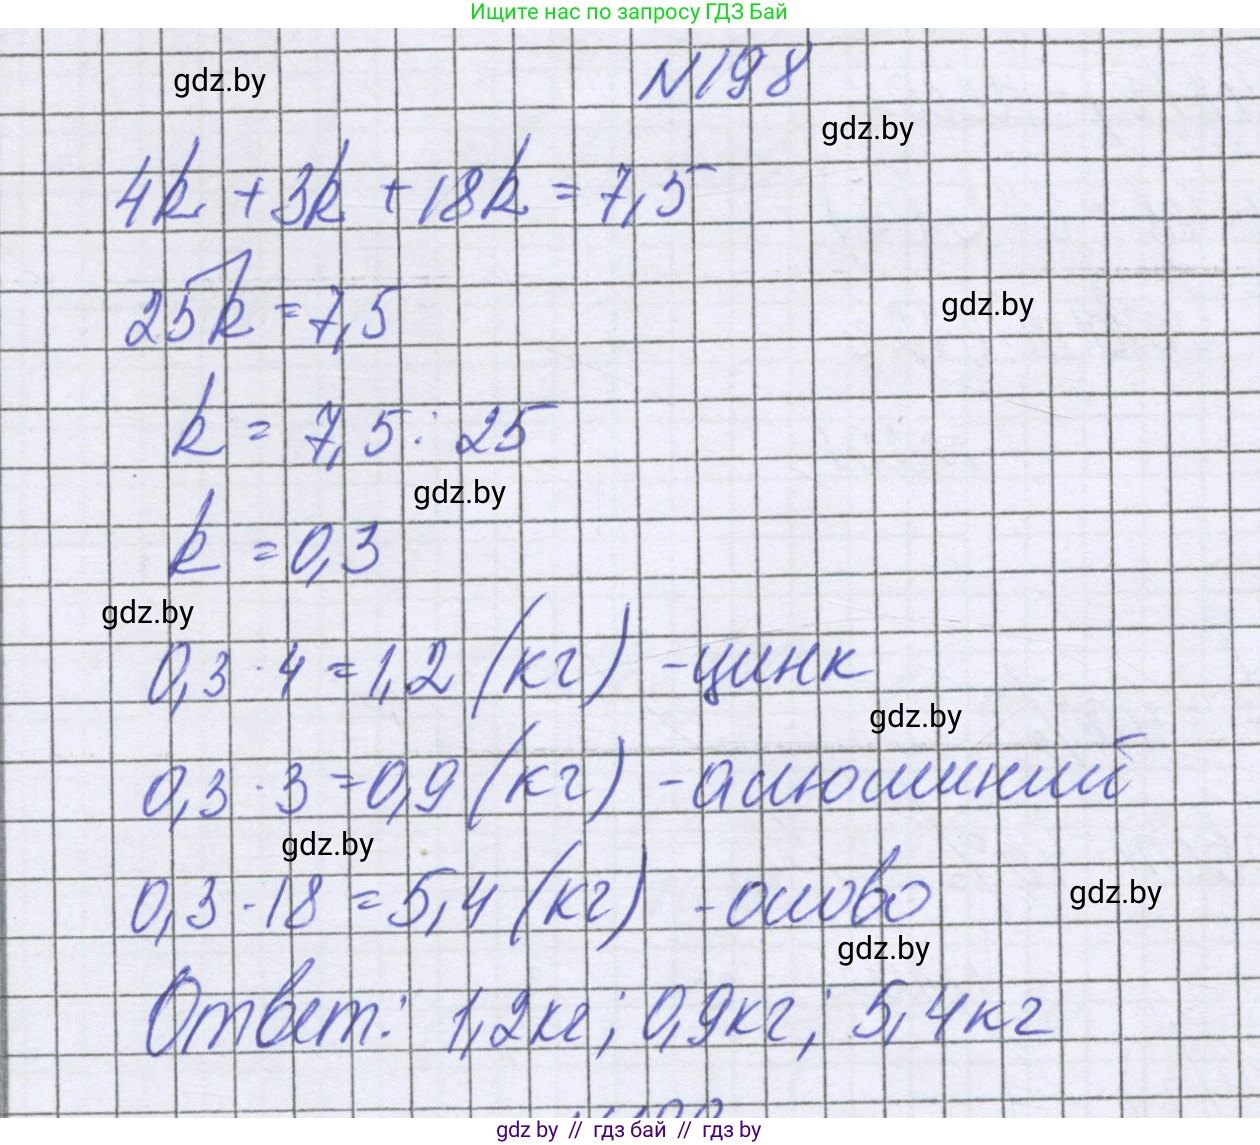 Ищите нас по запросу ГДЗ Бай
N198
gdz.by
gdz.by
4k + 3k + 18k = 7,5
25k = 7,5
gdz.by
k = 7,5 : 25
gdz.by
k = 0,3
gdz.by
0,3 · 4 = 1,2 (кг) - цинк
gdz.by
0,3 · 3 = 0,9 (кг) - алюминий
gdz.by
0,3 · 18 = 5,4 (кг) - олово
gdz.by
gdz.by
Ответ: 1,2кг; 0,9кг; 5,4кг
gdz.by // гдз бай // гдз by